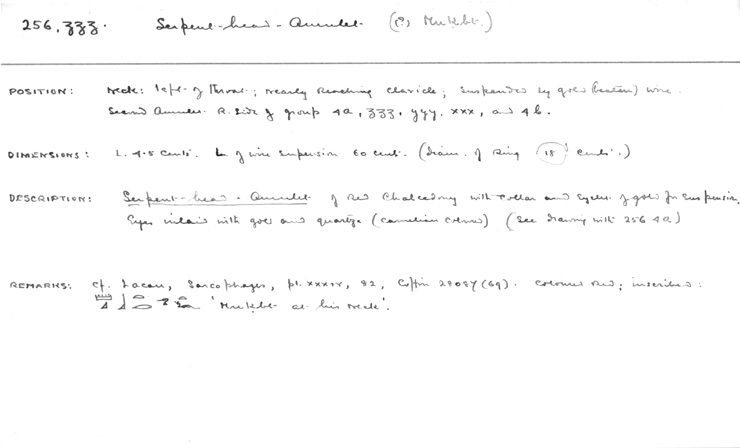 256, zzz. Serpent-head-Amulet (?) Mnkbt.)
POSITION: Neck: left of throat; nearly reaching clavicle; suspended by gold (beaten) wire.
Second Amulet R. side of group 4a, zzz, yyy, xxx, and 4b.
DIMENSIONS: L. 4.5 cents. L. of wire suspension 60 cent. (diam. of Ring 18 cents.)
DESCRIPTION: Serpent-head-Amulet of Red Chalcedony with collar and eyelet of gold for suspension.
Eyes inlaid with gold and quartze (carnelian colour) (See drawing with 256 4a)
REMARKS: cf. Lacau, Sarcophages, pl. XXXIV, 82, Coffin (69). Coloured red; inscribed:
'Mnkbt at his neck'.